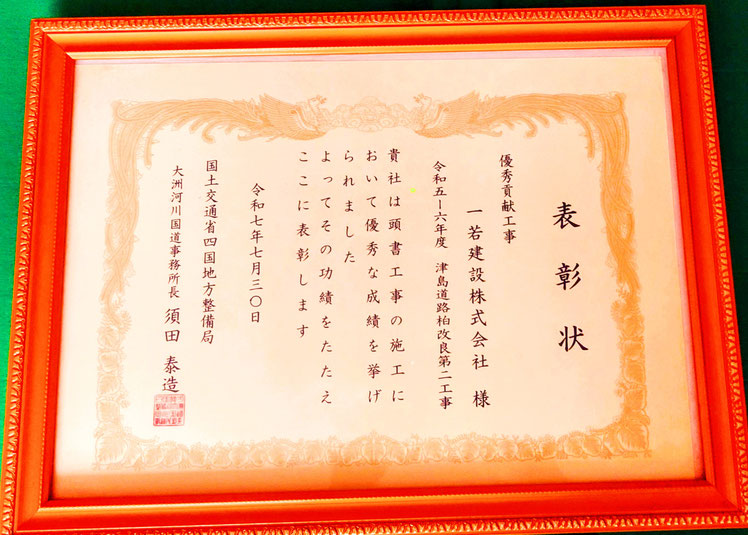 表彰状
優秀貢献工事
一若建設株式会社 様
令和五－六年度 津島道路柏改良第二工事
貴社は頭書工事の施工に
おいて優秀な成績を挙げ
られました
よってその功績をたたえ
ここに表彰します
令和七年七月三〇日
国土交通省四国地方整備局
大洲河川国道事務所長 須田 泰造